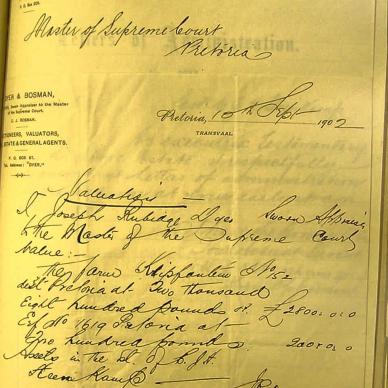 P. O. BOX
Master of Supreme Court
Pretoria
DYER & BOSMAN,
Sworn Appraiser to the Master
of the Supreme Court,
J. BOSMAN.
AUCTIONEERS, VALUATORS,
ESTATE & GENERAL AGENTS.
P. O. BOX 61.
Tel. Address: "DYER,"
Pretoria, 10th Sept 1902
TRANSVAAL
Valuation
I Joseph Rubidge Dyer Sworn Appraiser
to the Master of the Supreme Court
value:-
The farm Klipfontein No
dist Pretoria at Two thousand
Eight hundred pounds £2800.0.0
Erf No 1619 Pretoria at
Two hundred pounds 200.0.0
Assets in the Est of C. J. H.
Keemkamp